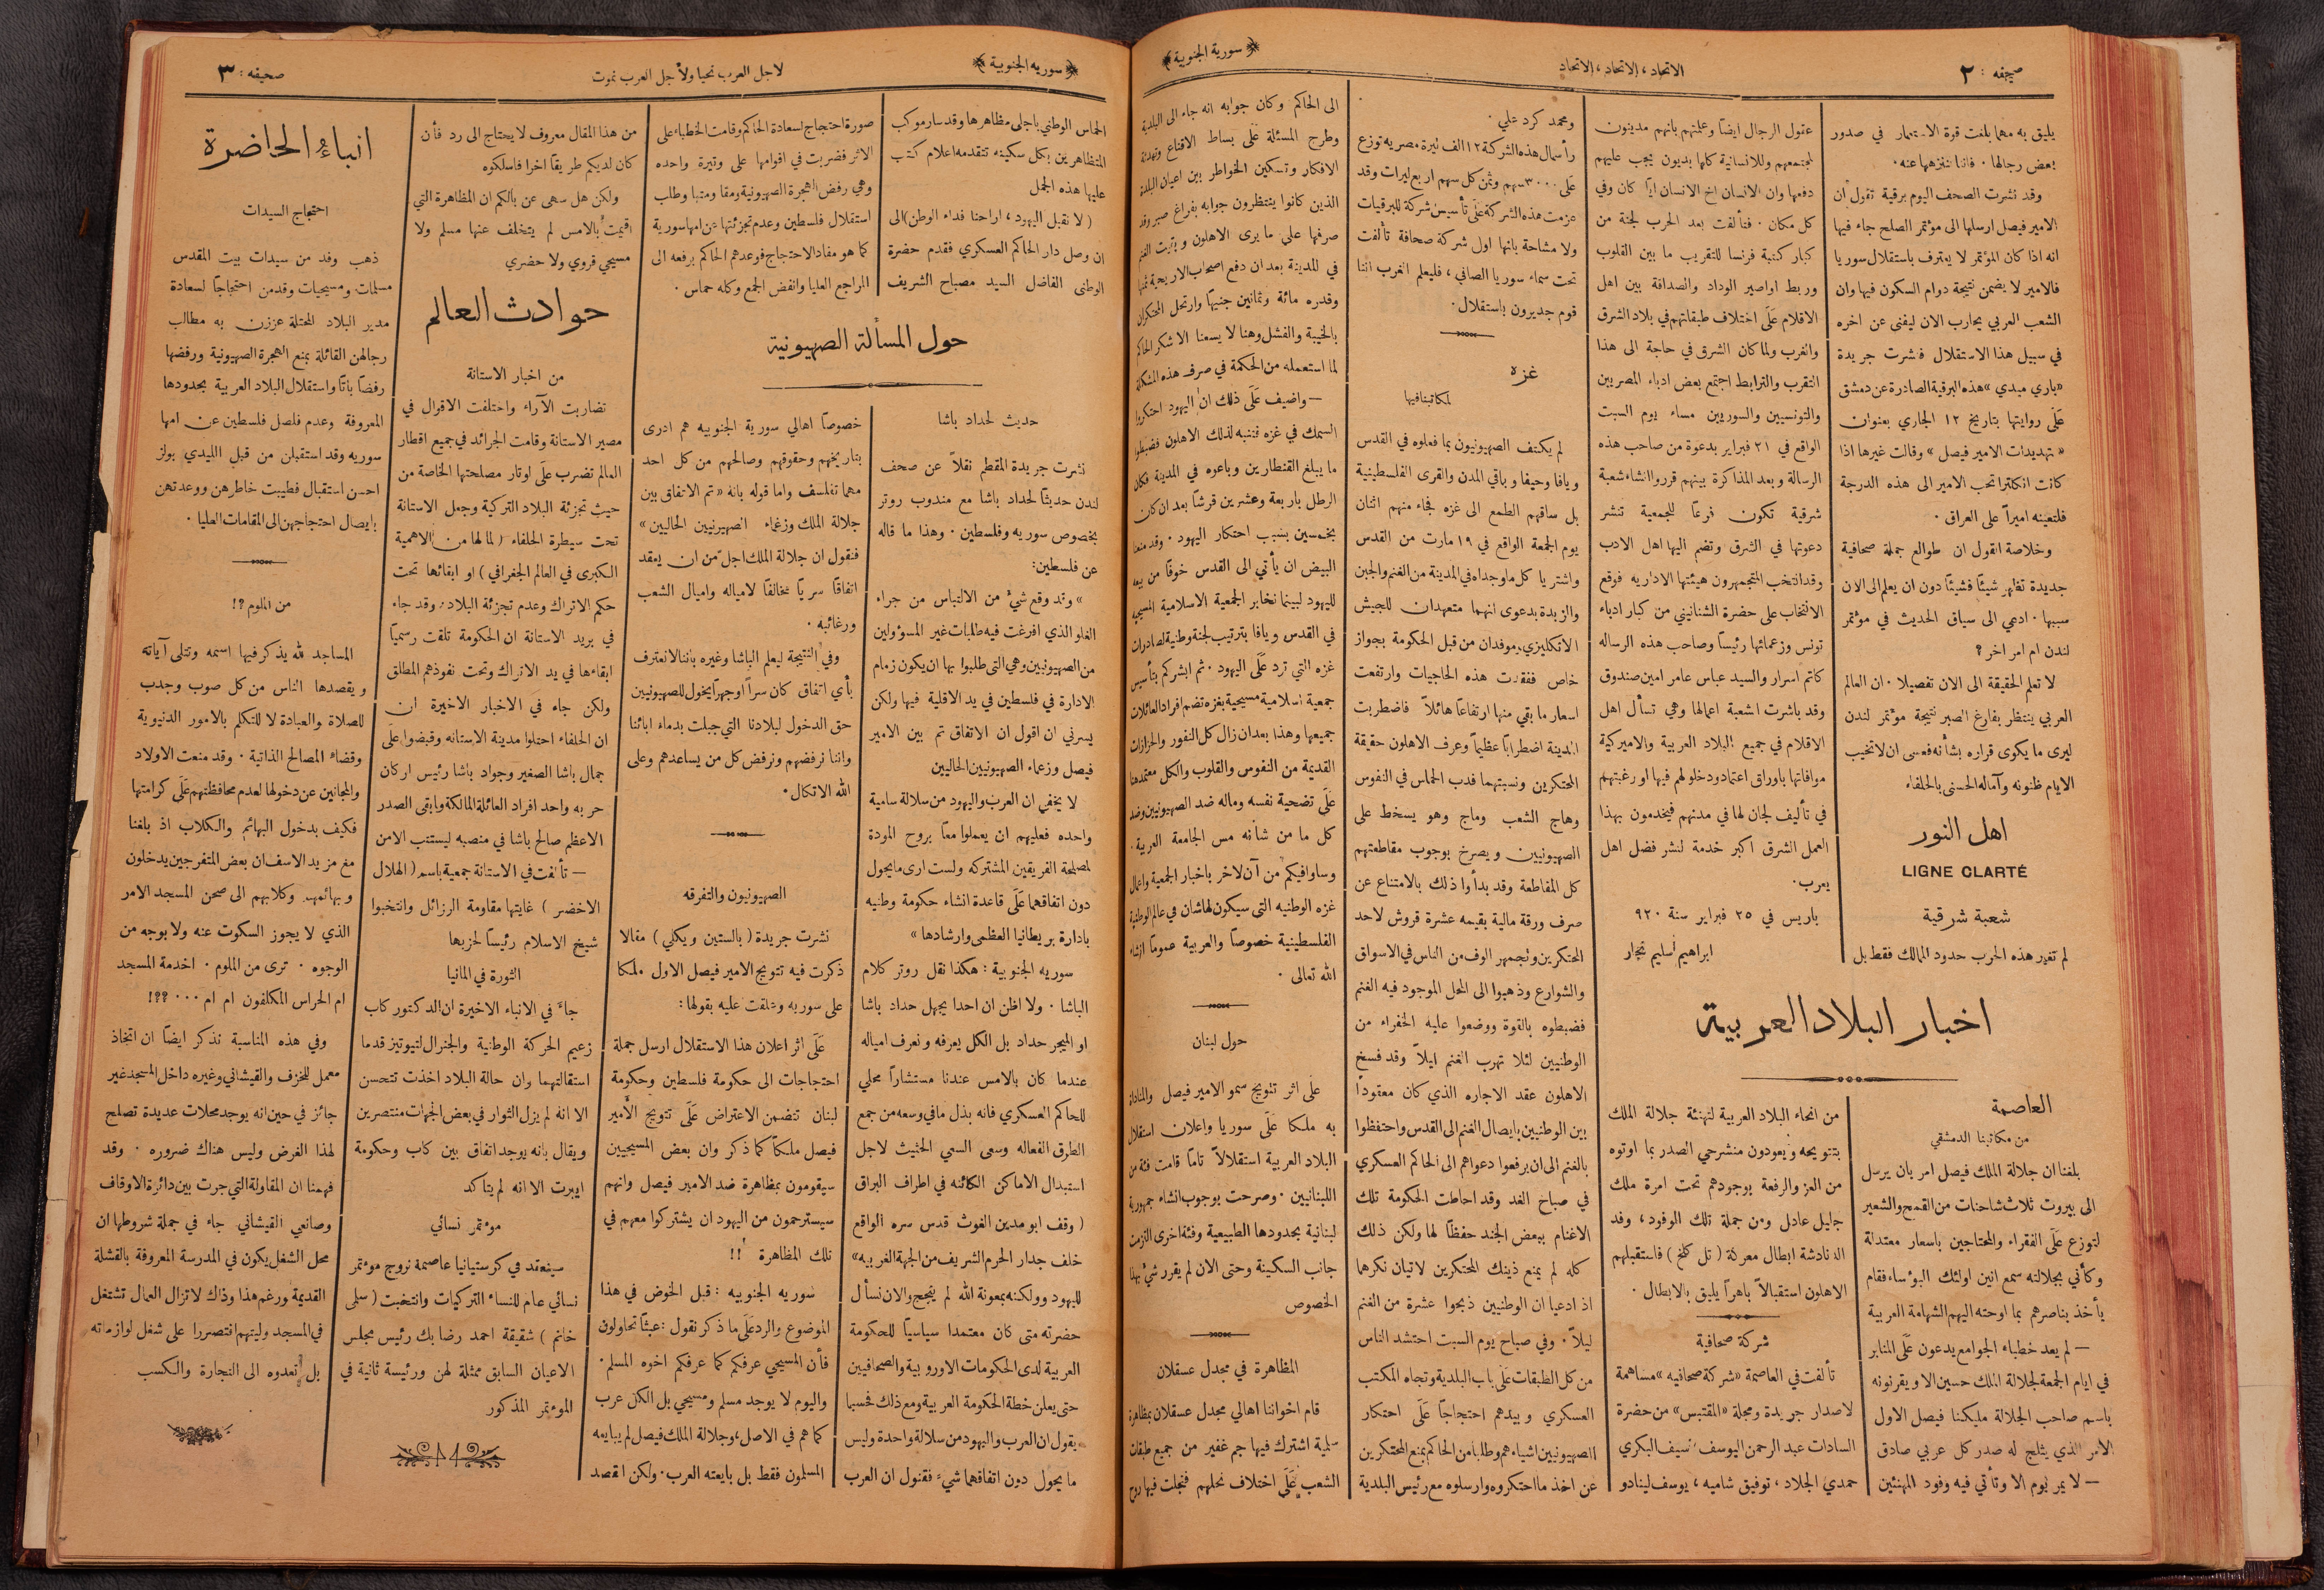 صحيفه : ٢
الاتحاد ، الاتحاد ، الاتحاد
﴿ سورية الجنوبية ﴾
يليق به مهما بلغت قوة الاستعمار في صدور
بعض رجالها . فاننا ننزهها عنه .
وقد نشرت الصحف اليوم برقية تقول ان
الامير فيصل ارسلها الى مؤتمر الصلح جاء فيها
انه اذا كان المؤتمر لا يعترف باستقلال سوريا
فالامير لا يضمن نتيجة دوام السكون فيها وان
الشعب العربي يحارب الان ليفنى عن اخره
في سبيل هذا الاستقلال فنشرت جريدة
«باري ميدي» هذه البرقية الصادرة عن دمشق
على روايتها بتاريخ ١٢ الجاري بعنوان
« تهديدات الامير فيصل » وقالت غيرها اذا
كانت انكلترا تحب الامير الى هذه الدرجة
فلتعينه اميراً على العراق .
وخلاصة القول ان طوالع جملة صحافية
جديدة تظهر شيئًا فشيئًا دون ان يعلم الى الان
سببها . ادعي الى سياق الحديث في مؤتمر
لندن ام امر اخر ؟
لا تعلم الحقيقة الى الان تفصيلا . ان العالم
العربي ينتظر بفارغ الصبر نتيجة مؤتمر لندن
ليرى ما يكوى قراره بشأنه فعسى ان لا تخيب
الايام ظنونه وآماله الحسنى بالحلفاء
اهل النور
LIGNE CLARTÉ
شعبة شرقية
لم تغير هذه الحرب حدود الممالك فقط بل
عقول الرجال ايضًا وعلمتهم بانهم مدينون
لمجتمعهم وللانسانية كلها بديون يجب عليهم
دفعها وان الانسان اخ الانسان ايًا كان وفي
كل مكان . فتألفت بعد الحرب لجنة من
كبار كتبة فرنسا للتقريب ما بين القلوب
وربط اواصير الوداد والصداقة بين اهل
الاقلام على اختلاف طبقاتهم في بلاد الشرق
والغرب ولما كان الشرق في حاجة الى هذا
التقرب والترابط اجتمع بعض ادباء المصريين
والتونسيين والسوريين مساء يوم السبت
الواقع في ٢١ فبراير بدعوة من صاحب هذه
الرسالة وبعد المذاكرة بينهم قرروا انشاء شعبة
شرقية تكون فرعًا للجمعية تنشر
دعوتها في الشرق وتضم اليها اهل الادب
وقد انتخب المتجمهرون هيئتها الاداريه فوقع
الانتخاب على حضرة الشنانيني من كبار ادباء
تونس وزعمائها رئيسًا وصاحب هذه الرساله
كاتم اسرار والسيد عباس عامر امين صندوق
وقد باشرت الشعبة اعمالها وهي تسأل اهل
الاقلام في جميع البلاد العربية والاميركية
موافاتها باوراق اعتماد ودخولهم فيها او رغبتهم
في تأليف لجان لها في مدنهم فيخدمون بهذا
العمل الشرق اكبر خدمة لنشر فضل اهل
يعرب .
باريس في ٢٥ فبراير سنة ٩٢٠
ابراهيم سليم نجار
اخبار البلاد العربية
العاصمة
من مكاتبنا الدمشقي
بلغنا ان جلالة الملك فيصل امر بان يرسل
الى بيروت ثلاث شاحنات من القمح والشعير
لتوزع على الفقراء والمحتاجين باسعار معتدلة
وكأني بجلالته سمع انين اولئك البؤساء فقام
يأخذ بناصرهم بما اوحته اليهم الشهامة العربية
— لم يعد خطباء الجوامع يدعون على المنابر
في ايام الجمعة لجلالة الملك حسين الا ويقرنونه
باسم صاحب الجلالة مليكنا فيصل الاول
الامر الذي يثلج له صدر كل عربي صادق
— لا يمر يوم الا وتأتي فيه وفود المهنئين
من انحاء البلاد العربية لتهنئة جلالة الملك
بتتويجه ويعودون منشرحي الصدر بما اوتوه
من العز والرفعة بوجودهم تحت امرة ملك
جليل عادل ومن جملة تلك الوفود ، وفد
الدنادشة ابطال معركة ( تل كلخ ) فاستقبلهم
الاهلون استقبالاً باهراً يليق بالابطال .
شركة صحافية
تألفت في العاصمة «شركة صحافيه» مساهمة
لاصدار جريدة ومجلة «المقتبس» من حضرة
السادات عبد الرحمن اليوسف ، نسيف البكري
حمدي الجلاد ، توفيق شاميه ، يوسف لينادو
ومحمد كرد علي .
رأسمال هذه الشركة ١٢ الف ليرة مصريه توزع
على ٣٠٠٠ سهم وثمن كل سهم اربع ليرات وقد
عزمت هذه الشركة على تأسيس شركة للبرقيات
ولا مشاحة بانها اول شركة صحافة تألفت
تحت سماء سوريا الصافي ، فليعلم الغرب اننا
قوم جديرون باستقلال .
غزه
لمكاتبنا فيها
لم يكتف الصهيونيون بما فعلوه في القدس
ويافا وحيفا وباقي المدن والقرى الفلسطينية
بل ساقهم الطمع الى غزه فجاء منهم اثنان
يوم الجمعة الواقع في ١٩ مارت من القدس
واشتريا كل ما وجداه في المدينة من الغنم والجبن
والزبدة بدعوى انهما متعهدان للجيش
الانكليزي وموفدان من قبل الحكومة بجواز
خاص ففقدت هذه الحاجيات وارتفعت
اسعار ما بقي منها ارتفاعًا هائلاً فاضطربت
المدينة اضطرابًا عظيماً وعرف الاهلون حقيقة
المحتكرين ونسبتهما فدب الحماس في النفوس
وهاج الشعب وماج وهو يسخط على
الصهيونيين ويصرخ بوجوب مقاطعتهم
كل المقاطعة وقد بدأوا ذلك بالامتناع عن
صرف ورقة مالية بقيمه عشرة قروش لاحد
المحتكرين وتجمهر الوف من الناس في الاسواق
والشوارع وذهبوا الى المحل الموجود فيه الغنم
فضبطوه بالقوة ووضعوا عليه الخفراء من
الوطنيين لئلا تهرب الغنم ليلاً وقد فسخ
الاهلون عقد الاجاره الذي كان معقوداً
بين الوطنيين بايصال الغنم الى القدس واحتفظوا
بالغنم الى ان يرفعوا دعواهم الى الحاكم العسكري
في صباح الغد وقد احاطت الحكومة تلك
الاغنام ببعض الجند حفظًا لها ولكن ذلك
كله لم يمنع ذينك المحتكرين لاتيان نكرهما
اذ ادعيا ان الوطنيين ذبحوا عشرة من الغنم
ليلاً . وفي صباح يوم السبت احتشد الناس
من كل الطبقات على باب البلدية وتجاه المكتب
العسكري وبيدهم احتجاجًا على احتكار
الصهيونيين اشياءهم وطلبا من الحاكم بمنع المحتكرين
عن اخذ ما احتكروه وارسلوه مع رئيس البلدية
الى الحاكم وكان جوابه انه جاء الى البلدية
وطرح المسئلة على بساط الاقناع وتهدئة
الافكار وتسكين الخواطر بين اعيان البلدة
الذين كانوا ينتظرون جوابه بفراغ صبر وقد
صرفها على ما يرى الاهلون وبقيت الغنم
في المدينة بعد ان دفع اصحاب الاريحية ثمنها
وقدره مائة وثمانين جنيهًا وارتحل المحتكران
بالخيبة والفشل وهنا لا يسعنا الا شكر الحاكم
لما استعمله من الحكمة في صرف هذه المشكلة
— واضيف على ذلك ان اليهود احتكروا
السمك في غزه فتنبه لذلك الاهلون فضبطوا
ما يبلغ القنطارين وباعوه في المدينة فكان
الرطل باربعة وعشرين قرشًا بعد ان كان
بخمسين بسبب احتكار اليهود . وقد منعوا
البيض ان يأتي الى القدس خوفًا من بيعه
لليهود لبينما نخابر الجمعية الاسلامية المسيحية
في القدس ويافا بترتيب لجنة وطنية لصادرات
غزه التي ترد على اليهود . ثم ابشركم بتأسيس
جمعية اسلامية مسيحية بغزه تضم افراد العائلات
جميعها وهذا بعد ان زال كل النفور والحزازات
القديمة من النفوس والقلوب والكل معتمدها
على تضحية نفسه وماله ضد الصهيونيين وضد
كل ما من شأنه مس الجامعة العربية .
وساوافيكم من آن لاخر باخبار الجمعية واعمال
غزه الوطنيه التي سيكون لها شان في عالم الوطنية
الفلسطينية خصوصًا والعربية عمومًا انشاء
الله تعالى .
حول لبنان
على اثر تتويج سمو الامير فيصل والمناداة
به ملكا على سوريا واعلان استقلال
البلاد العربية استقلالاً تامًا قامت فئة من
اللبنانيين . وصرحت بوجوب انشاء جمهورية
لبنانية بحدودها الطبيعية وفئة اخرى التزمت
جانب السكينة وحتى الان لم يقرر شيء بهذا
الخصوص
المظاهرة في مجدل عسقلان
قام اخواننا اهالي مجدل عسقلان بمظاهرة
سلمية اشترك فيها جم غفير من جميع طبقات
الشعب على اختلاف نحلهم فتجلت فيها روح
﴿ سوريه الجنوبية ﴾
لاجل العرب نحيا ولأجل العرب نموت
صحيفه : ٣
الحماس الوطني باجلى مظاهرها وقد سار موكب
المتظاهرين بكل سكينه تتقدمه اعلام كتب
عليها هذه الجمل
( لا نقبل اليهود ، ارواحنا فداء الوطن ) الى
ان وصل دار الحاكم العسكري فقدم حضرة
الوطني الفاضل السيد مصباح الشريف
صورة احتجاج لسعادة الحاكم وقامت الخطباء على
الاثر فضربت في اقوامها على وتيرة واحده
وهي رفض الهجرة الصهيونية ومقاومتها وطلب
استقلال فلسطين وعدم تجزئتها عن امها سورية
كما هو مفاد الاحتجاج فوعدهم الحاكم برفعه الى
المراجع العليا وانفض الجمع وكله حماس .
حول المسألة الصهيونية
حديث لحداد باشا
نشرت جريدة المقطم نقلاً عن صحف
لندن حديثًا لحداد باشا مع مندوب روتر
بخصوص سوريه وفلسطين . وهذا ما قاله
عن فلسطين:
» وقد وقع شيء من الالتباس من جراء
الغلو الذي افرغت فيه طلبات غير المسؤولين
من الصهيونيين وهي التي طلبوا بها ان يكون زمام
الادارة في فلسطين في يد الاقلية فيها ولكن
يسرني ان اقول ان الاتفاق تم بين الامير
فيصل وزعماء الصهيونيين الحاليين
لا يخفى ان العرب واليهود من سلالة سامية
واحده فعليهم ان يعملوا معًا بروح المودة
لمصلحة الفريقين المشتركه ولست ارى ما يحول
دون اتفاقهما على قاعدة انشاء حكومة وطنيه
بادارة بريطانيا العظمى وارشادها »
سوريه الجنوبية : هكذا نقل روتر كلام
الباشا . ولا اظن ان احدا يجهل حداد باشا
او الميجر حداد بل الكل يعرفه ونعرف امياله
عندما كان بالامس عندنا مستشاراً محلي
للحاكم العسكري فانه بذل ما في وسعه من جمع
الطرق الفعاله وسعى السعي الحثيث لاجل
استبدال الاماكن الكائنه في اطراف البراق
( وقف ابو مدين الغوث قدس سره الواقع
خلف جدار الحرم الشريف من الجهة الغربيه »
لليهود وولكنه بمعونة الله لم ينجح والان نسأل
حضرته متى كان معتمدا سياسيًا للحكومة
العربية لدى الحكومات الاوروبية والصحافيين
حتى يعلن خطة الحكومة العربية ومع ذلك فحسبما
يقول ان العرب واليهود من سلالة واحدة وليس
ما يحول دون اتفاقهما شيء فنقول ان العرب
خصوصًا اهالي سورية الجنوبيه هم ادرى
بتاريخهم وحقوقهم وصالحهم من كل احد
مهما تفلسف واما قوله بانه « تم الاتفاق بين
جلالة الملك وزعماء الصهيونيين الحاليين »
فنقول ان جلالة الملك اجلّ من ان يعقد
اتفاقًا سريًا مخالفًا لامياله واميال الشعب
ورغائبه .
وفي النتيجة ليعلم الباشا وغيره باننا لا نعترف
بأي اتفاق كان سراً او جهراً يخول للصهيونيين
حق الدخول لبلادنا التي جبلت بدماء ابائنا
واننا نرفضهم ونرفض كل من يساعدهم وعلى
الله الاتكال .
الصهيونيون والتفرقه
نشرت جريدة ( بالستين ويكلي ) مقالا
ذكرت فيه تتويج الامير فيصل الاول ملكا
على سوريه وعلقت عليه بقولها :
على اثر اعلان هذا الاستقلال ارسل جملة
احتجاجات الى حكومة فلسطين وحكومة
لبنان تتضمن الاعتراض على تتويج الأمير
فيصل ملكًا كما ذكر وان بعض المسيحيين
سيقومون بمظاهرة ضد الامير فيصل وانهم
سيسترحمون من اليهود ان يشتركوا معهم في
تلك المظاهرة !!
سوريه الجنوبيه : قبل الخوض في هذا
الموضوع والرد على ما ذكر نقول : عبثًا تحاولون
فأن المسيحي عرفكم كما عرفكم اخوه المسلم .
واليوم لا يوجد مسلم ومسيحي بل الكل عرب
كما هم في الاصل ، وجلالة الملك فيصل لم يبايعه
المسلمون فقط بل بايعته العرب . ولكن القصد
من هذا المقال معروف لا يحتاج الى رد فأن
كان لديكم طريقًا اخرا فاسلكوه
ولكن هل سهى عن بالكم ان المظاهرة التي
اقيمت بالامس لم يتخلف عنها مسلم ولا
مسيحي قروي ولا حضري
حوادث العالم
من اخبار الاستانة
تضاربت الآراء واختلفت الاقوال في
مصير الاستانة وقامت الجرائد في جميع اقطار
العالم تضرب على اوتار مصلحتها الخاصة من
حيث تجزئة البلاد التركية وجعل الاستانة
تحت سيطرة الحلفاء ( لما لها من الاهمية
الكبرى في العالم الجغرافي ) او ابقائها تحت
حكم الاتراك وعدم تجزئة البلاد ، وقد جاء
في بريد الاستانة ان الحكومة تلقت رسميًا
ابقاءها في يد الاتراك وتحت نفوذهم المطلق
ولكن جاء في الاخبار الاخيرة ان
ان الحلفاء احتلوا مدينة الاستانه وقبضوا على
جمال باشا الصغير وجواد باشا رئيس اركان
حربه واحد افراد العائلة المالكة وابقى الصدر
الاعظم صالح باشا في منصبه ليستتب الامن
— تألفت في الاستانة جمعية باسم ( الهلال
الاخضر ) غايتها مقاومة الرزائل وانتخبوا
شيخ الاسلام رئيسًا لحزبها
الثورة في المانيا
جاء في الانباء الاخيرة ان الدكتور كاب
زعيم الحركة الوطنية والجنرال لتيوتيز قدما
استقالتهما وان حالة البلاد اخذت تتحسن
الا انه لم يزل الثوار في بعض الجهات منتصرين
ويقال بانه يوجد اتفاق بين كاب وحكومة
ايبرت الا انه لم يتأكد
موءتمر نسائي
سينعقد في كرستيانيا عاصمة نروج موءتمر
نسائي عام للنساء التركيات وانتخبت ( سلمى
خانم ) شقيقة احمد رضا بك رئيس مجلس
الاعيان السابق ممثلة لهن ورئيسة ثانية في
الموءتمر المذكور
انباء الحاضرة
احتجاج السيدات
ذهب وفد من سيدات بيت المقدس
مسلمات ومسيحيات وقدمن احتجاجًا لسعادة
مدير البلاد المحتلة عززن به مطالب
رجالهن القائلة بمنع الهجرة الصهيونية ورفضها
رفضًا باتًا واستقلال البلاد العربية بحدودها
المعروفة وعدم فلصل فلسطين عن امها
سوريه وقد استقبلن من قبل الليدي بولز
احسن استقبال فطيبت خاطرهن ووعدتهن
بايصال احتجاجهن الى المقامات العليا .
من الملوم ؟!
المساجد لله يذكر فيها اسمه وتتلى آياته
ويقصدها الناس من كل صوب وجدب
للصلاة والعبادة لا للتكلم بالامور الدنيوية
وقضاء المصالح الذاتية . وقد منعت الاولاد
والمجانين عن دخولها لعدم محافظتهم على كرامتها
فكيف بدخول البهائم والكلاب اذ بلغنا
مع مزيد الاسف ان بعض المتفرجين يدخلون
وبهائمهم وكلابهم الى صحن المسجد الامر
الذي لا يجوز السكوت عنه ولا بوجه من
الوجوه . ترى من الملوم . اخدمة المسجد
ام الحراس المكلفون ام ام ... ؟؟!
وفي هذه المناسبة نذكر ايضًا ان اتخاذ
معمل للخزف والقيشاني وغيره داخل المسجد غير
جائز في حين انه يوجد محلات عديدة تصلح
لهذا الغرض وليس هناك ضروره . وقد
فهمنا ان المقاولة التي جرت بين دائرة الاوقاف
وصانعي القيشاني جاء في جملة شروطها ان
محل الشغل يكون في المدرسة المعروفة بالقشلة
القديمة ورغم هذا وذاك لا تزال العمال تشتغل
في المسجد وليتهم اقتصروا على شغل لوازماته
بل تعدوه الى التجارة والكسب